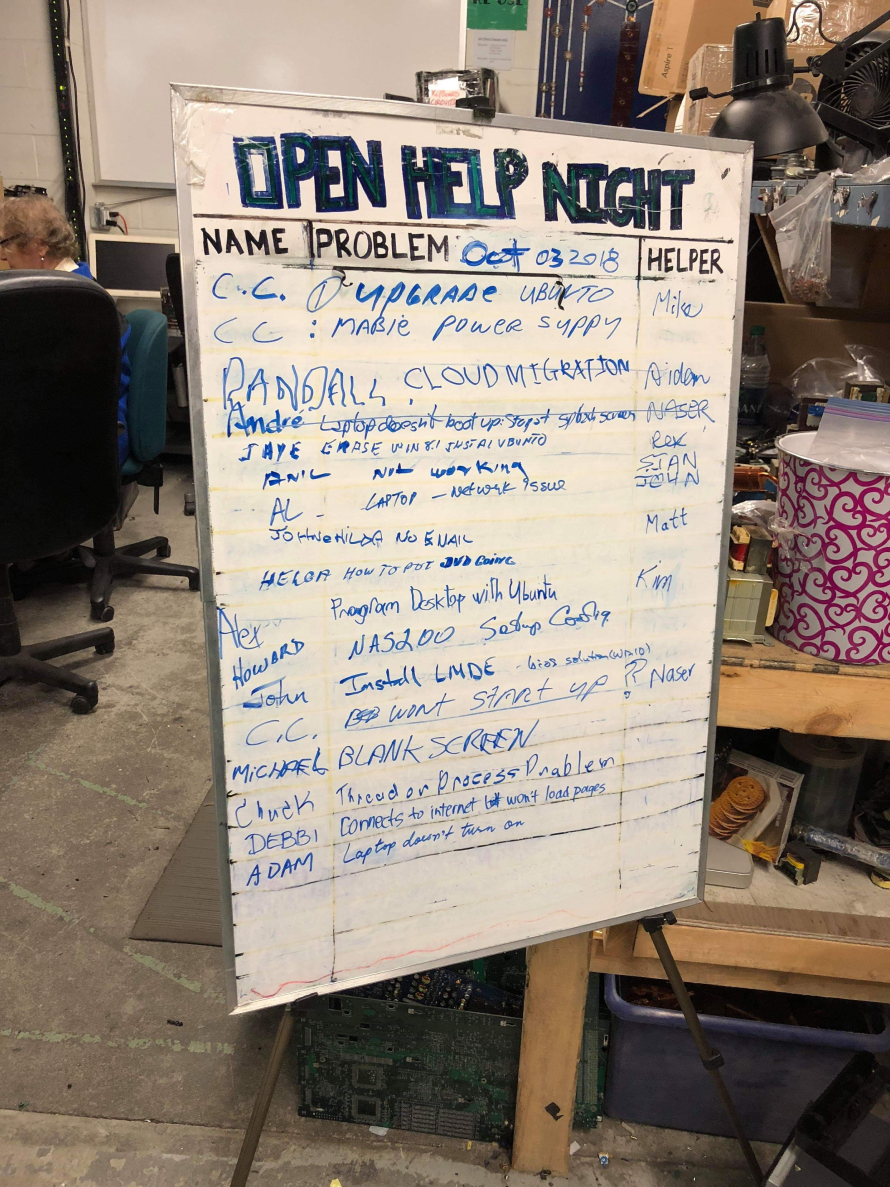 RE-USE
Aspire T
OPEN HELP NIGHT
NAME PROBLEM Oct 03 2018 HELPER
C.C. ① UPGRADE UBUNTO Mike
CC : MABIE POWER SUPPY
RANDALL CLOUD MIGRATION Aidan
Andre Laptop doesn't boot up: stops at splash screen NASER
JAYE ERASE WIN 8.1 INSTAL UBUNTO Rex
ANIL Not working STAN
AL - LAPTOP - Network issue JOHN
JOHN+HILDA NO EMAIL Matt
HELGA HOW TO PUT DVD Going
Alex Program Desktop with Ubuntu Kim
HOWARD NAS200 Setup Config.
John Install LMDE - bios solution
C.C. WONT START UP ?? Naser
MICHAEL BLANK SCREEN
Chuck Thread or Process Problem
DEBBI Connects to internet but won't load pages
ADAM Laptop doesn't turn on